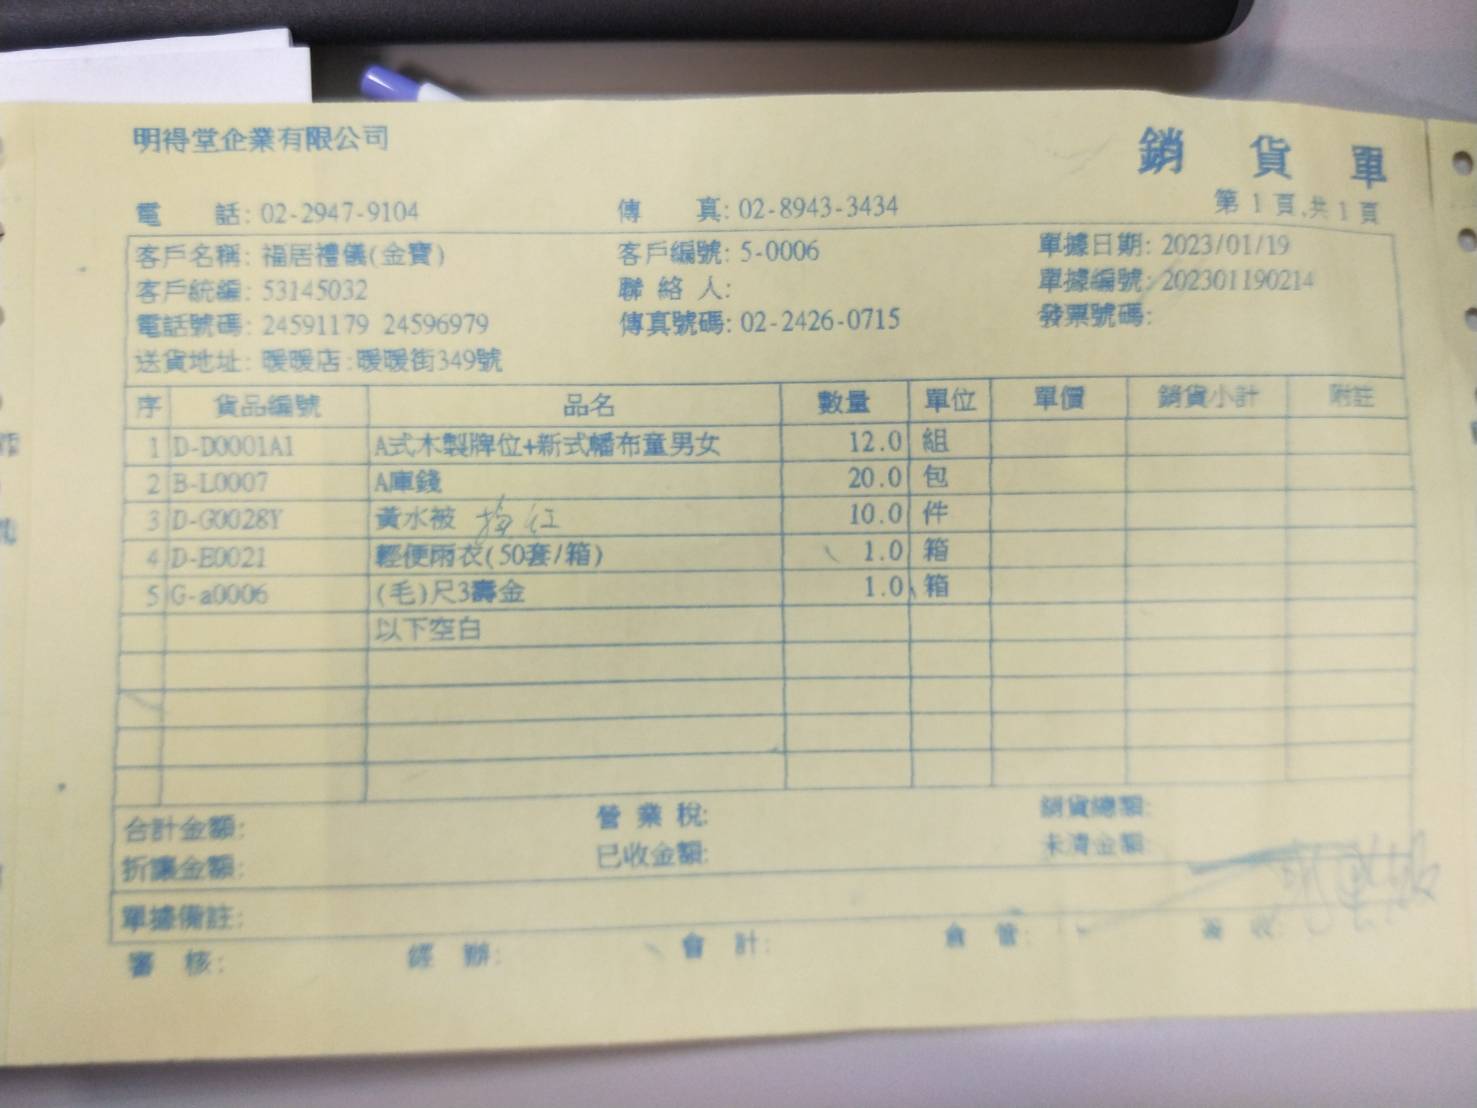 明得堂企業有限公司
銷貨單
電話: 02-2947-9104 傳真: 02-8943-3434 第 1 頁,共 1 頁
客戶名稱: 福居禮儀(金寶) 客戶編號: 5-0006 單據日期: 2023/01/19
客戶統編: 53145032 聯絡人: 單據編號: 202301190214
電話號碼: 24591179 24596979 傳真號碼: 02-2426-0715 發票號碼:
送貨地址: 暖暖店:暖暖街349號
序 貨品編號 品名 數量 單位 單價 銷貨小計 附註
1 D-D0001A1 A式木製牌位+新式幡布童男女 12.0 組
2 B-L0007 A庫錢 20.0 包
3 D-G0028Y 黃水被 紅 10.0 件
4 D-E0021 輕便雨衣(50套/箱) 1.0 箱
5 G-a0006 (毛)尺3壽金 1.0 箱
以下空白
合計金額: 營業稅: 銷貨總額:
折讓金額: 已收金額: 未清金額:
單據備註:
審核: 經辦: 會計: 倉管: